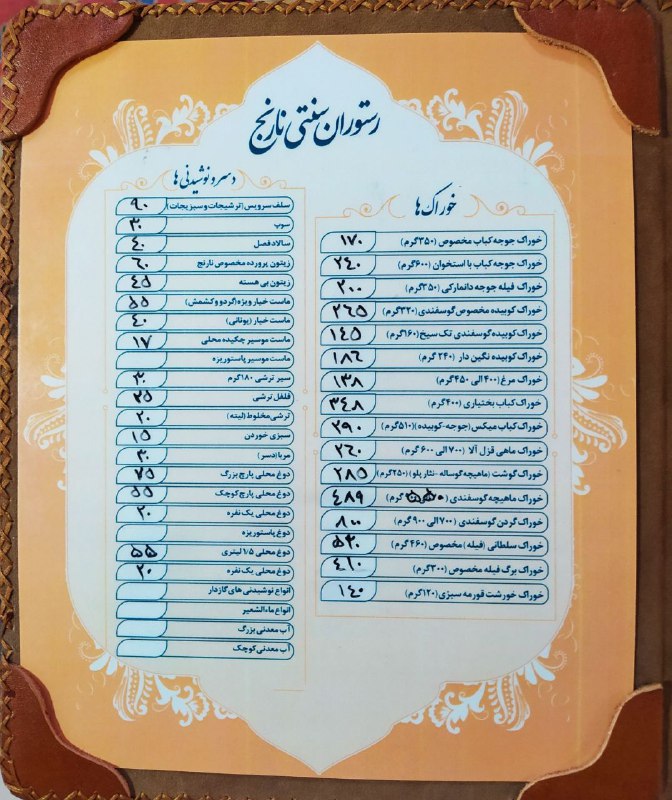 رستوران سنتی نارنج
خوراک ها
خوراک جوجه کباب مخصوص (۳۵۰گرم) ۱۷۰
خوراک جوجه کباب با استخوان (۶۰۰گرم) ۲۴۰
خوراک فیله جوجه دانمارکی (۳۵۰گرم) ۲۰۰
خوراک کوبیده مخصوص گوسفندی (۳۲۰گرم) ۲۶۵
خوراک کوبیده گوسفندی تک سیخ (۱۶۰گرم) ۱۴۵
خوراک کوبیده نگین دار (۲۴۰ گرم) ۱۸۶
خوراک مرغ (۴۰۰ الی ۴۵۰گرم) ۱۳۸
خوراک کباب بختیاری (۴۰۰گرم) ۳۴۸
خوراک کباب میکس (جوجه-کوبیده) (۵۱۰گرم) ۲۹۰
خوراک ماهی قزل آلا (۷۰۰ الی ۶۰۰ گرم) ۲۶۰
خوراک گوشت (ماهیچه گوساله -نثار پلو) (۲۵۰گرم) ۲۸۵
خوراک ماهیچه گوسفندی (۵۵۰ گرم) ۴۸۹
خوراک گردن گوسفندی (۷۰۰ الی ۹۰۰ گرم) ۸۰۰
خوراک سلطانی (فیله) مخصوص (۴۶۰گرم) ۵۳۰
خوراک برگ فیله مخصوص (۳۰۰گرم) ۴۱۰
خوراک خورشت قورمه سبزی (۱۲۰گرم) ۱۴۰
دسر و نوشیدنی ها
سلف سرویس (ترشیجات و سبزیجات) ۹۰
سوپ ۳۰
سالاد فصل ۴۰
زیتون پرورده مخصوص نارنج ۶۰
زیتون بی هسته ۴۵
ماست خیار ویژه (گردو و کشمش) ۵۵
ماست خیار (یونانی) ۴۰
ماست موسیر چکیده محلی ۱۷
ماست موسیر پاستوریزه
سیر ترشی ۱۸۰گرم ۳۰
فلفل ترشی ۲۵
ترشی مخلوط (لیته) ۲۰
سبزی خوردن ۱۵
مربا (دسر) ۳۰
دوغ محلی پارچ بزرگ ۷۵
دوغ محلی پارچ کوچک ۵۵
دوغ محلی یک نفره ۲۰
دوغ پاستوریزه
دوغ محلی ۱/۵ لیتری ۵۵
دوغ محلی یک نفره ۲۰
انواع نوشیدنی های گازدار
انواع ماءالشعیر
آب معدنی بزرگ
آب معدنی کوچک